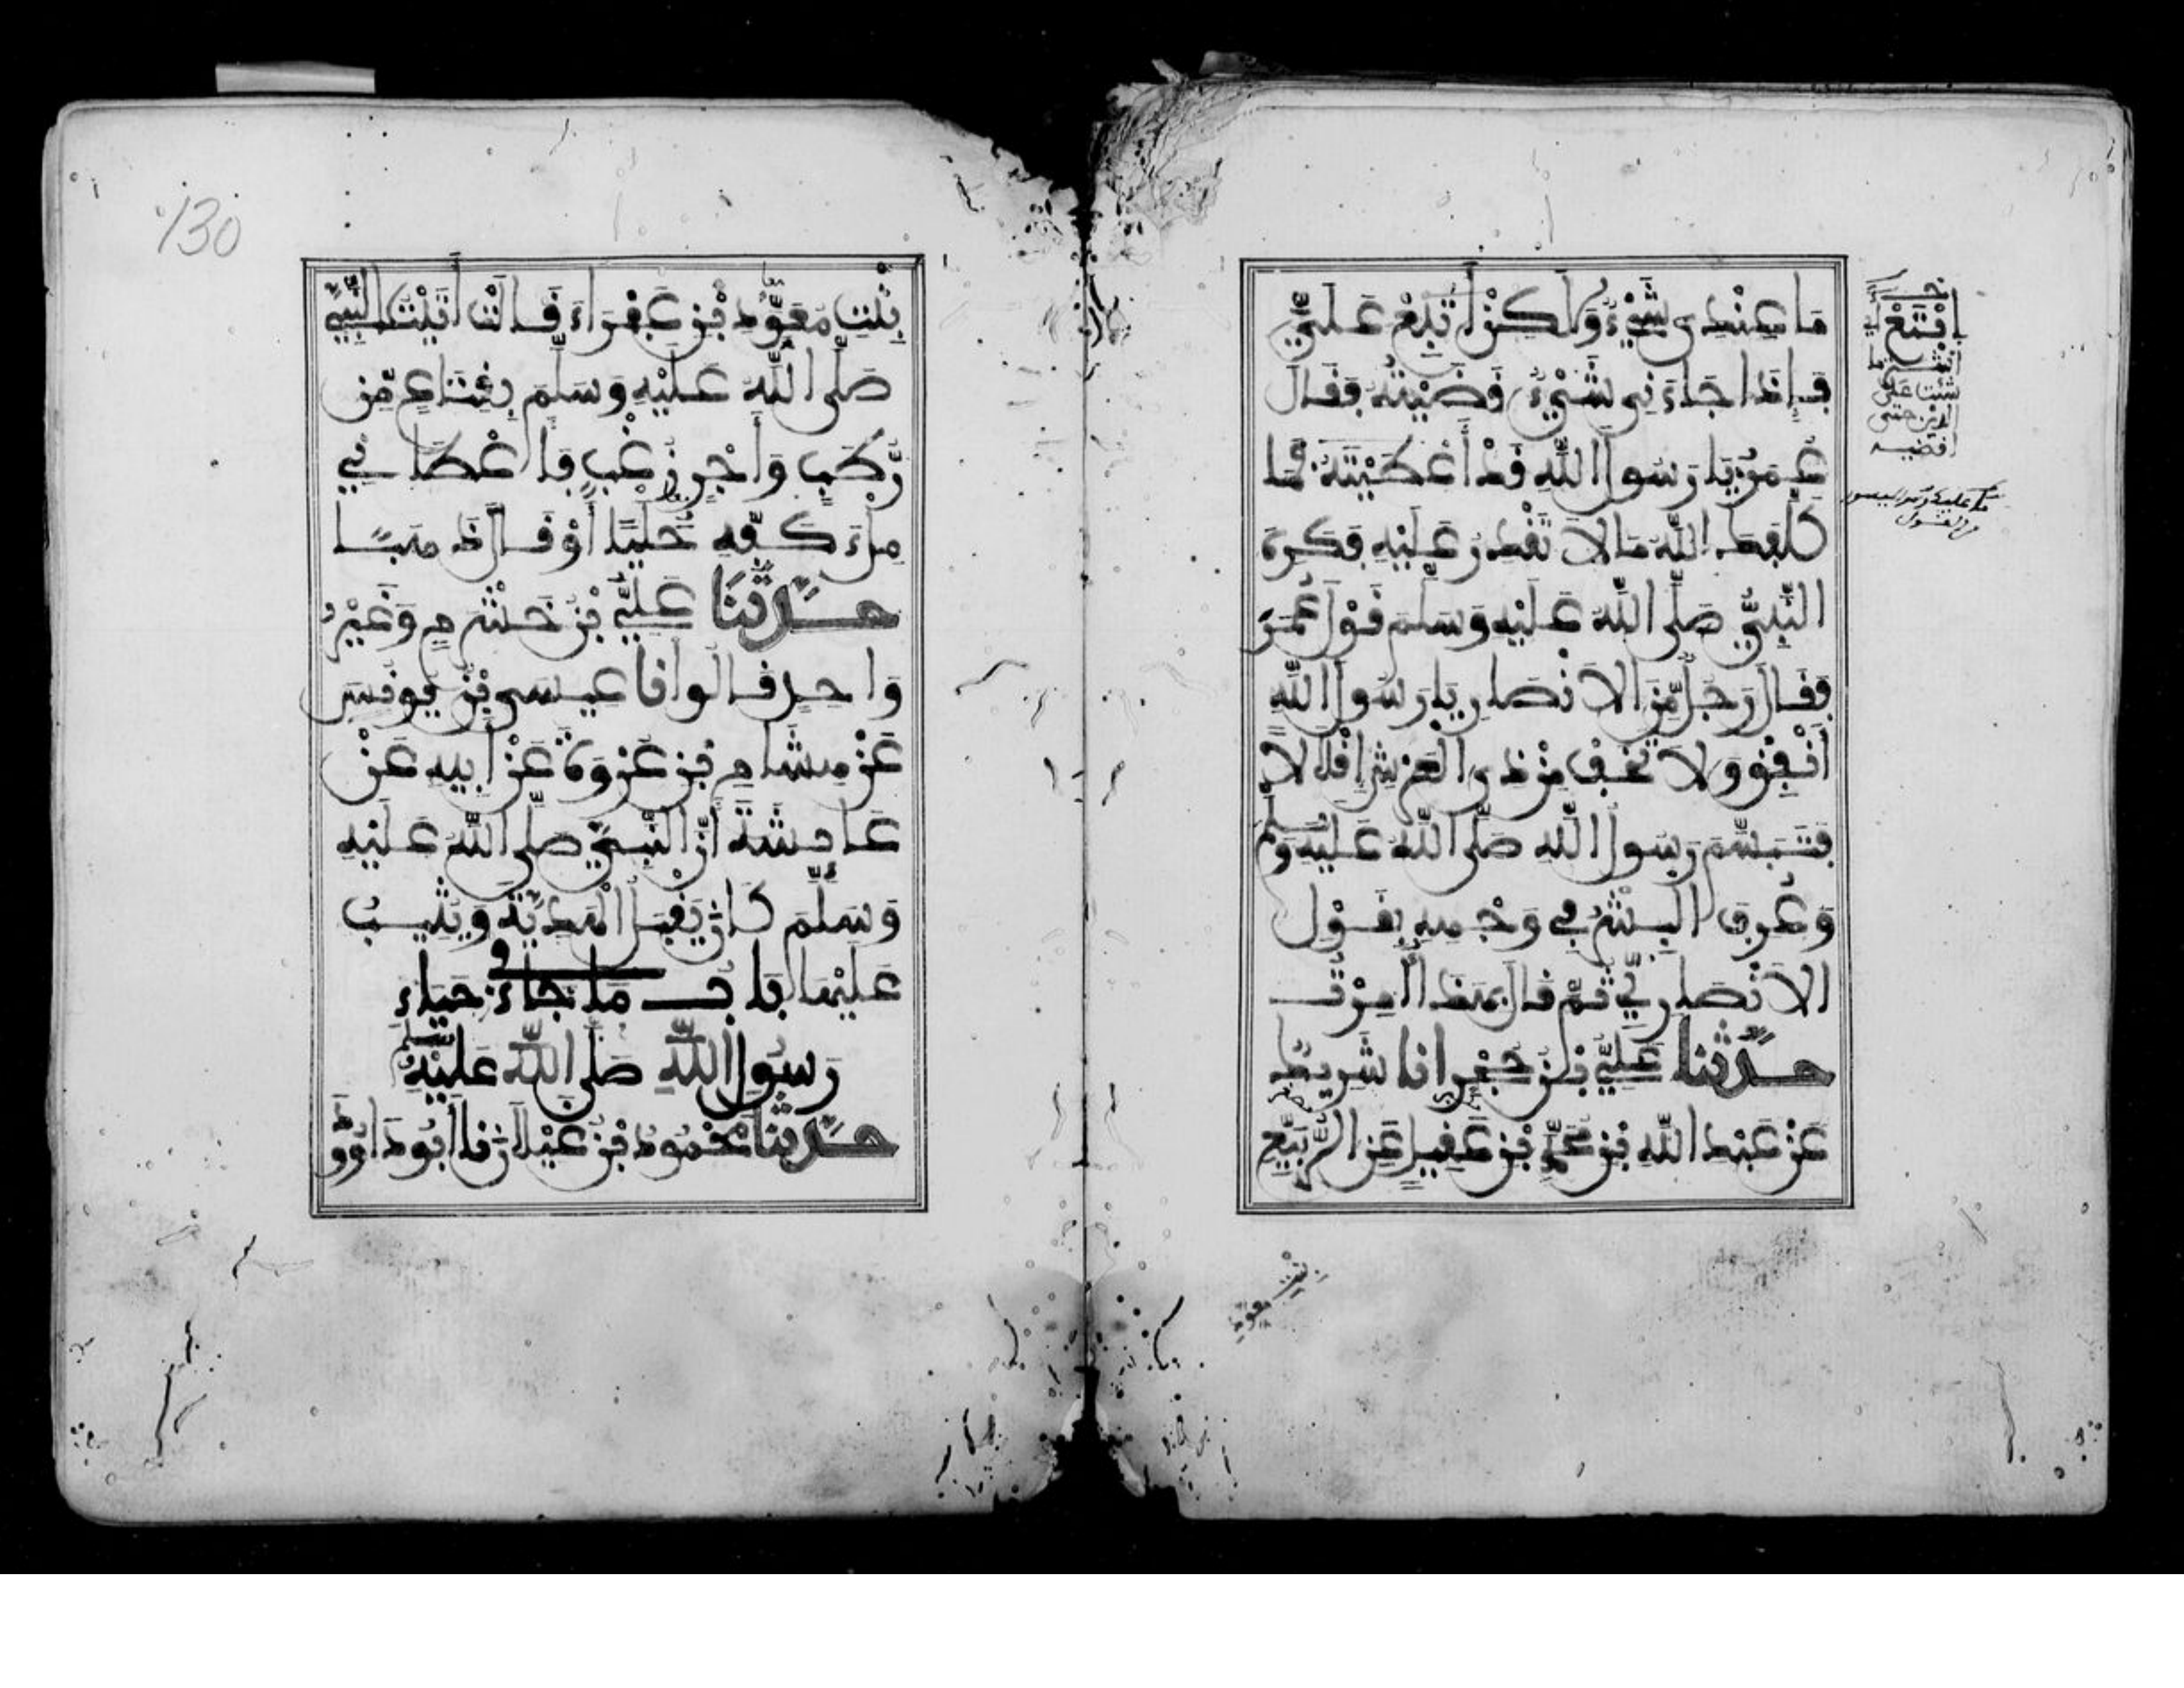 مَا عِنْدِي شَيْءٌ وَلَكِنْ ابْتَعْ عَلَيَّ
فَإِذَا جَاءَنِي شَيْءٌ قَضَيْتُهُ فَقَالَ
عُمَرُ يَا رَسُولَ اللَّهِ قَدْ أَعْطَيْتَهُ فَمَا
كَلَّفَكَ اللَّهُ مَا لَا تَقْدِرُ عَلَيْهِ فَكَرِهَ
النَّبِيُّ صَلَّى اللَّهُ عَلَيْهِ وَسَلَّمَ قَوْلَ عُمَرَ
فَقَالَ رَجُلٌ مِّنَ الْأَنْصَارِ يَا رَسُولَ اللَّهِ
أَنْفِقْ وَلَا تَخَفْ مِنْ ذِي الْعَرْشِ إِقْلَالًا
فَتَبَسَّمَ رَسُولُ اللَّهِ صَلَّى اللَّهُ عَلَيْهِ وَسَلَّمَ
وَعُرِفَ الْبِشْرُ فِي وَجْهِهِ بِقَوْلِ
الْأَنْصَارِيِّ ثُمَّ قَالَ بِهَذَا أُمِرْتُ
حَدَّثَنَا عَلِيُّ بْنُ حُجْرٍ انا شَرِيكٌ
عَنْ عَبْدِ اللَّهِ بْنِ مُحَمَّدِ بْنِ عَقِيلٍ عَنِ الرُّبَيِّعِ
بنت معوذ
ابْتَعْ
شئت على
حتى
اقضيه
130
بِنْتِ مُعَوِّذِ بْنِ عَفْرَاءَ قَالَتْ أَتَيْتُ النَّبِيَّ
صَلَّى اللَّهُ عَلَيْهِ وَسَلَّمَ بِقِنَاعٍ مِّنْ
رُّطَبٍ وَأَجْرٍ زُغْبٍ فَأَعْطَانِي
مِلْءَ كَفِّهِ حُلِيًّا أَوْ قَالَ ذَهَبًا
حَدَّثَنَا عَلِيُّ بْنُ خَشْرَمٍ وَغَيْرُ
وَاحِدٍ قَالُوا أَنَا عِيسَى بْنُ يُونُسَ
عَنْ هِشَامِ بْنِ عُرْوَةَ عَنْ أَبِيهِ عَنْ
عَائِشَةَ أَنَّ النَّبِيَّ صَلَّى اللَّهُ عَلَيْهِ
وَسَلَّمَ كَانَ يَقْبَلُ الْهَدِيَّةَ وَيُثِيبُ
عَلَيْهَا بَابُ مَا جَاءَ فِي حَيَاءِ
رَسُولِ اللَّهِ صَلَّى اللَّهُ عَلَيْهِ وَسَلَّمَ
حَدَّثَنَا مَحْمُودُ بْنُ غَيْلَانَ نا أَبُو دَاوُدَ